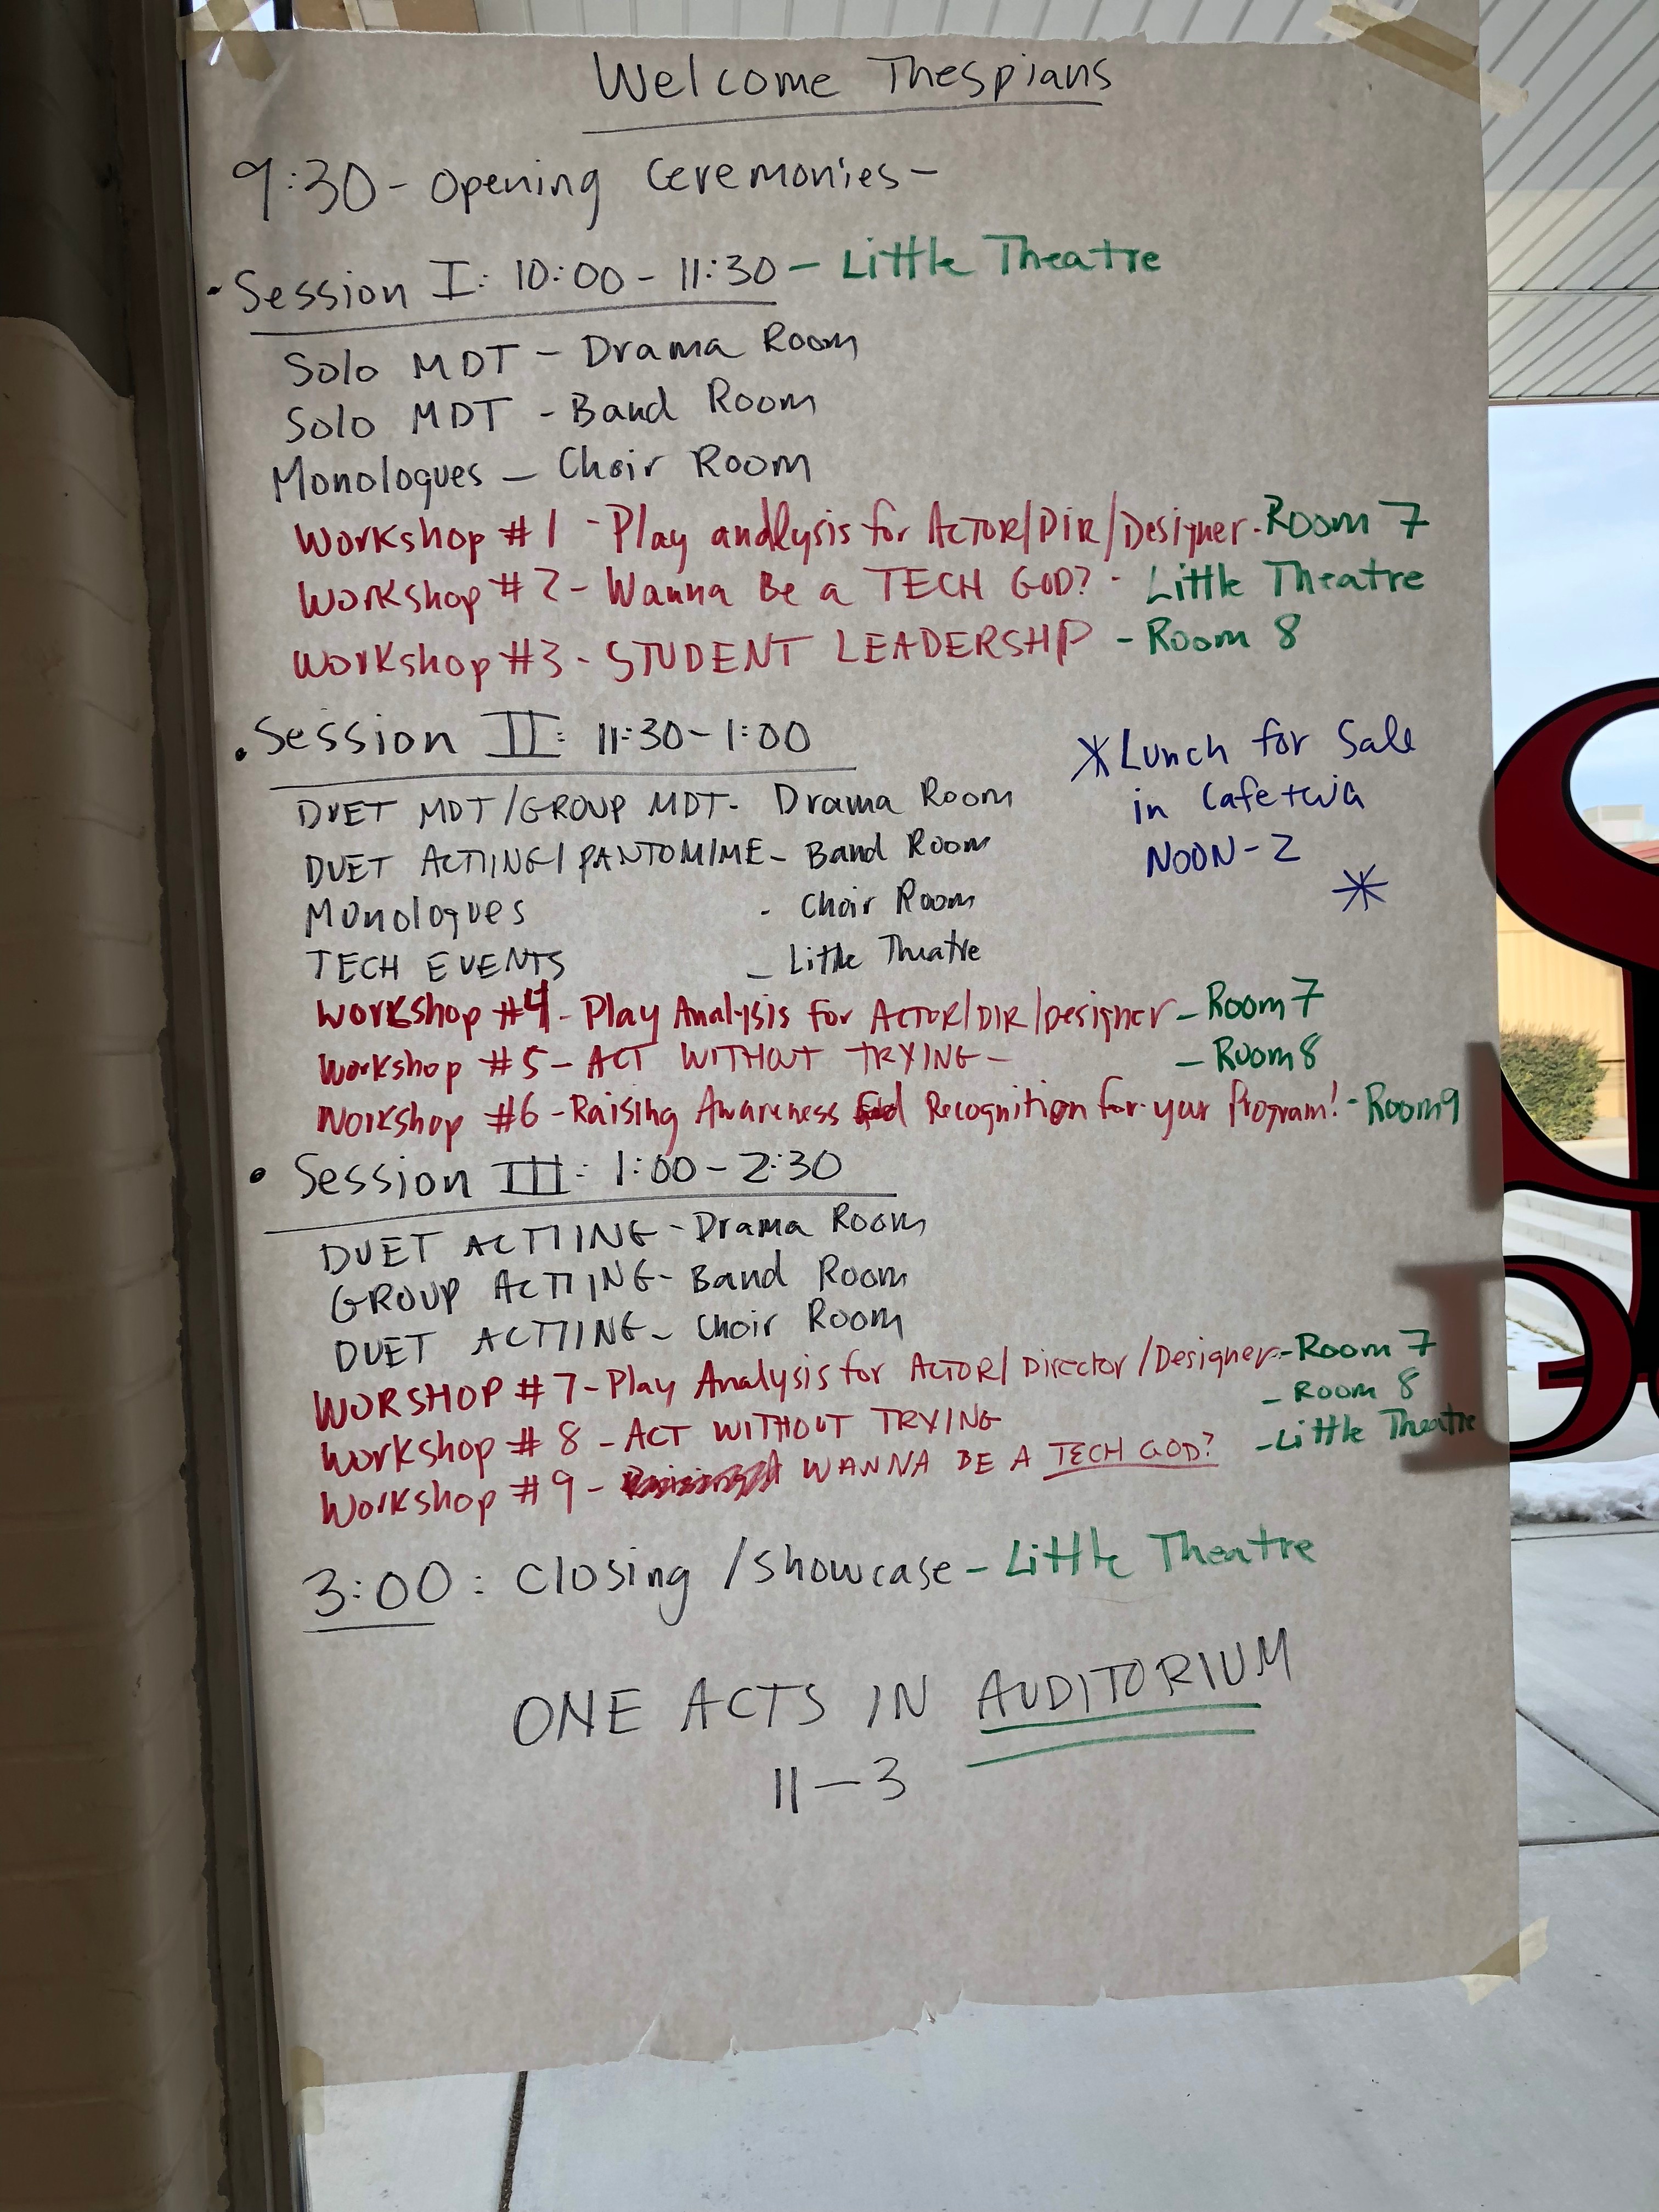 Welcome Thespians
9:30 - Opening Ceremonies -
• Session I: 10:00 - 11:30 - Little Theatre
Solo MDT - Drama Room
Solo MDT - Band Room
Monologues - Choir Room
Workshop #1 - Play analysis for ACTOR/DIR/Designer - Room 7
Workshop #2 - Wanna Be a TECH GOD? - Little Theatre
Workshop #3 - STUDENT LEADERSHP - Room 8
• Session II: 11:30 - 1:00
* Lunch for Sale
in Cafeteria
NOON - 2
*
DUET MDT/GROUP MDT - Drama Room
DUET ACTIING/PANTOMIME - Band Room
Monologues - Choir Room
TECH EVENTS - Little Theatre
Workshop #4 - Play Analysis for ACTOR/DIR/Designer - Room 7
Workshop #5 - ACT WITHOUT TRYING - - Room 8
Workshop #6 - Raising Awareness Recognition for your Program! - Room 9
• Session III: 1:00 - 2:30
DUET ACTIING - Drama Room
GROUP ACTIING - Band Room
DUET ACTIING - Choir Room
WORSHOP #7 - Play Analysis for ACTOR/Director/Designer - Room 7
Workshop #8 - ACT WITHOUT TRYING - Room 8
Workshop #9 - WANNA BE A TECH GOD? - Little Theatre
3:00: Closing/Showcase - Little Theatre
ONE ACTS IN AUDITORIUM
11 - 3